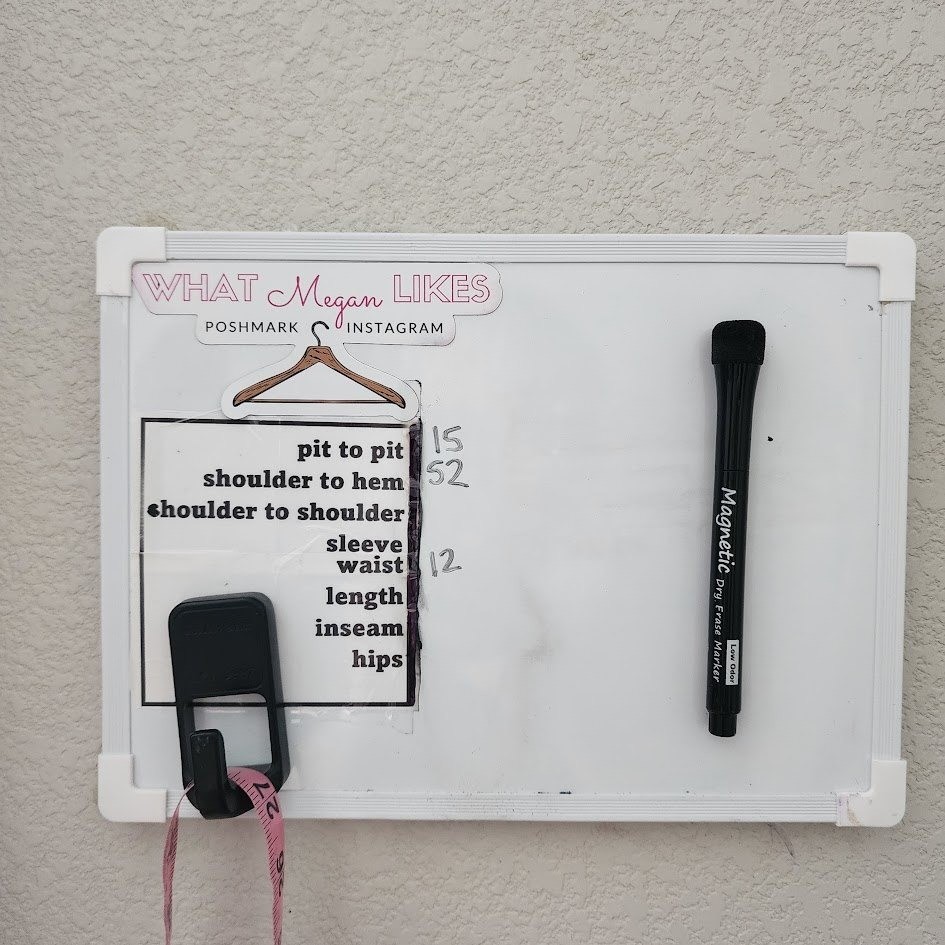 WHAT Megan LIKES
POSHMARK INSTAGRAM
pit to pit 15
shoulder to hem 52
shoulder to shoulder
sleeve
waist 12
length
inseam
hips
Magnetic Dry Erase Marker
Low Odor
27